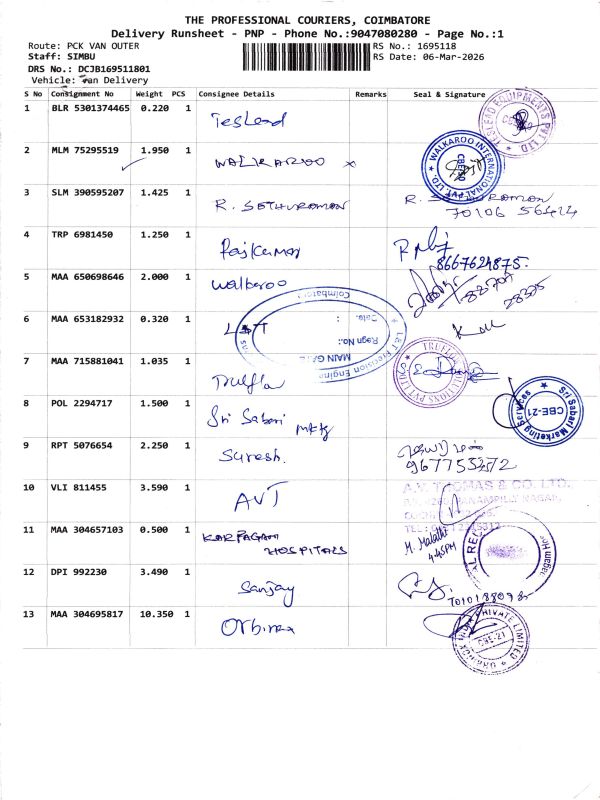 THE PROFESSIONAL COURIERS, COIMBATORE
Delivery Runsheet - PNP - Phone No.:9047080280 - Page No.:1
Route: PCK VAN OUTER
RS No.: 1695118
Staff: SIMBU
RS Date: 06-Mar-2026
DRS No.: DCJB169511801
Vehicle: Van Delivery
S No Consignment No Weight PCS Consignee Details Remarks Seal & Signature
1 BLR 5301374465 0.220 1 Teslead
TESLEAD EQUIPMENTS PVT LTD.
2 MLM 75295519 1.950 1 WALKAROO x
WALKAROO INTERNATIONAL PVT. LTD.
3 SLM 390595207 1.425 1 R. SETHURAMAN
70106 56424
4 TRP 6981450 1.250 1 Rajkumar
8667624875.
5 MAA 650698646 2.000 1 Walkeroo
6 MAA 653182932 0.320 1 L&T
L&T Precision Engine
Coimbatore
Date. :
Regn No.:
MAIN
7 MAA 715881041 1.035 1
8 POL 2294717 1.500 1 Sri Sabari mktg
Sri Sabari Marketing Services
CBE-21
9 RPT 5076654 2.250 1 Suresh.
10 VLI 811455 3.590 1 AVT
A.V. THOMAS & CO. LTD.
11 MAA 304657103 0.500 1 KARPAGAM
HOSPITALS
M. Malathi
4.45PM
12 DPI 992230 3.490 1 Sanjay
13 MAA 304695817 10.350 1
PRIVATE LIMITED
CBE-21